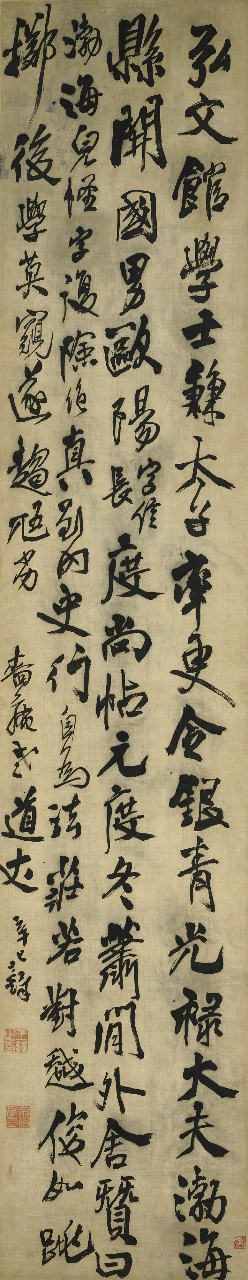 弘文館學士兼太子率更令銀青光祿大夫渤海
縣開國男歐陽字信度尚帖元度冬蕭閒外舍覽曰
渤海兒怪字復險絕真到內史行自為法莊若對越俊如跳
擲後學莫窺遂趨尪劣 道丈 辛巳鐸